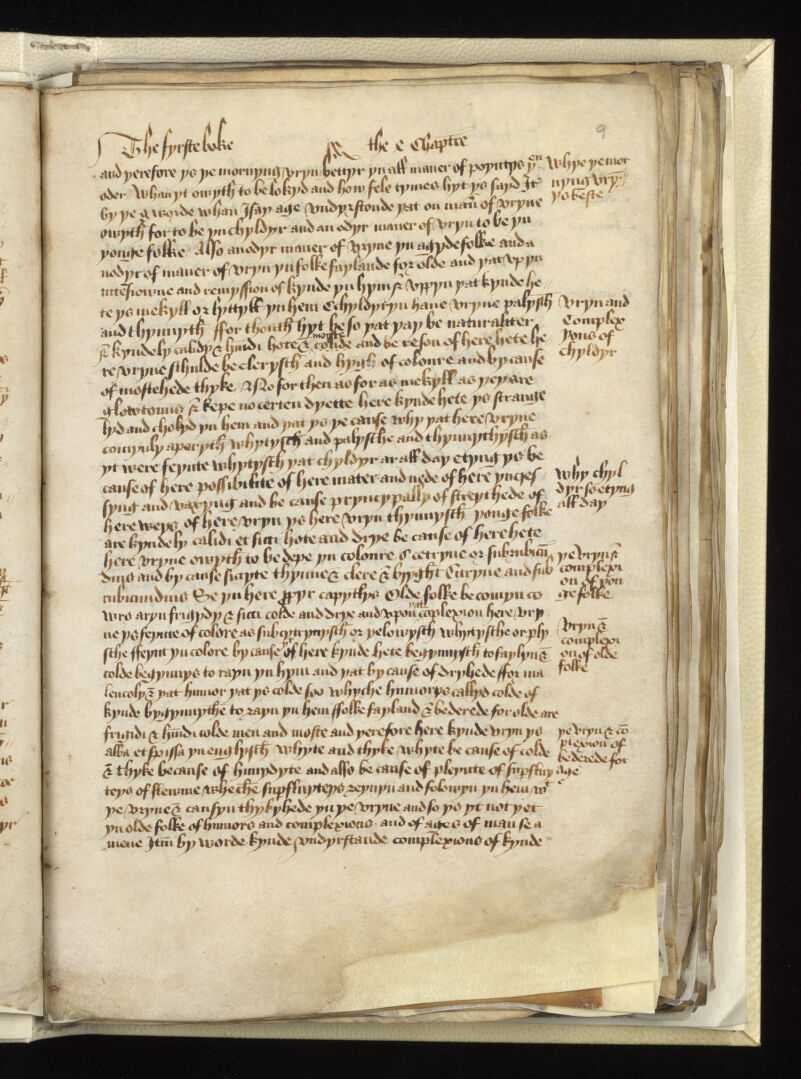 9
The fyrste boke the e Chaptre
and yerefore ys ye mornyng vryn bettyr yn all maner of poyntys yen
oder whan yt owyth to be lokyd and how fele tymes hyt ys sayd It
by ye worde whan I say age vndyrstonde yat on man of vryne
owyth for to be yn chyldyr and an odyr maner of vryn to be yn
yonge folke Also anodyr maner of vryne yn agyde folke and a
nodyr of maner of vryn yn folke faylande for olde and yat vp yn
and remyssion of kynde yn hym & vppyn yat kynde he
te ys mekyll or lyttyll yn hem Chyldyr yn haue vryne palysch
and thynnysch ffor thouth hyt be so yat yay be naturaliter
kyndely calidi & humidi hote & moyste and be reson of here hete he
re vryne schulde be clerysch and hygh of coloure and by cause
of mostehede thyke No for then as for as mekyll as yey are
glowtonus & kepe no certen dyette here kynde hete ys strange
lyd and chokyd yn hem and yat ys ye cause why yat here vryne
comynly aperyth whytysch and palysche and thynnythysch as
yt were feynte whytysch yat chyldyr ar all day etyng ys be
cause of here possibilite of here mater and nede of here ynces
syng and waxyng and be cause pryncypally of streythede of
here weys of here vryn ys here vryn thynnysch yonge folke
are kyndely calidi et sicci hote and drye be cause of here hete
here vryne owyth to be depe yn coloure cetryne or subrubicun
dus and by cause thynne & clere & bryght Citryne and sub
rubicundus Se yn here capythys Olde folke be comyn co
wrs aryn frigidy & sicci colde and drye and vpon yat complexion here vry
ne ys feynte of colore as subcytrynysch or yelowysch whytysche or ply
sche ffeynt yn colore by cause of here kynde hete begynnysch to faylyn &
colde begynnys to rayn yn hym and yat by cause of dryhede ffor ma
lencoly & yat humor yat ys colde soo whyche humorys callyd colde of
kynde bygynnythe to rayn yn hem ffolke fayland & bederede for olde are
frigidi & humidi colde men and moste and yerefore here kynde vryn ys
alba et spissa yn englysch whyte and thyke whyte be cause of colde
& thyke because of humydyte and also be cause of plente of supfluy
teys of flewme wheche supfluyteys reynyn and folowyn yn hem wt
ye vryne & causyn thykyhede yn ye vryne and so ys yt not yet
yn olde folke of humors and complexions and of ages of man se a
mene Itm by worde kynde vndyrstande complexions of kynde
Whye ye mor
nyng vry
ys beste
Vryn and
Complex
yons of
chyldyr
why chyl
dyr so etyng
all day
ye vryn &
complexi
on of yon
ge folke
Vryn &
complexi
on of olde
folke
ye vryn & co
plexion of
bederede for
age